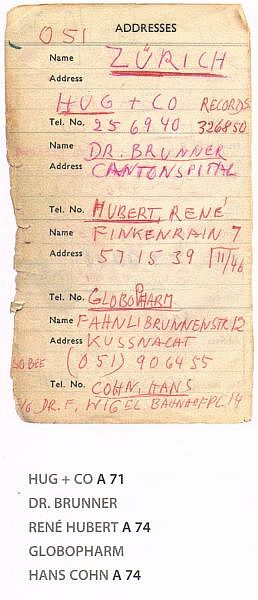 051 ADDRESSES
Name ZÜRICH
Address
HUG + CO RECORDS
Tel. No. 25 69 40 326850
Name DR. BRUNNER
Address CANTONSPITAL
Tel. No. HUBERT, RENÉ
Name FINKENRAIN 7
Address 57 15 39
Tel. No. GLOBOPHARM
Name FAHNLIBRUNNENSTR 12
Address KUSSNACAT
(051) 90 64 55
Tel. No. COHN, HANS
DR. F. WIGEL BAHNHOFPL 14
HUG + CO A 71
DR. BRUNNER
RENÉ HUBERT A 74
GLOBOPHARM
HANS COHN A 74